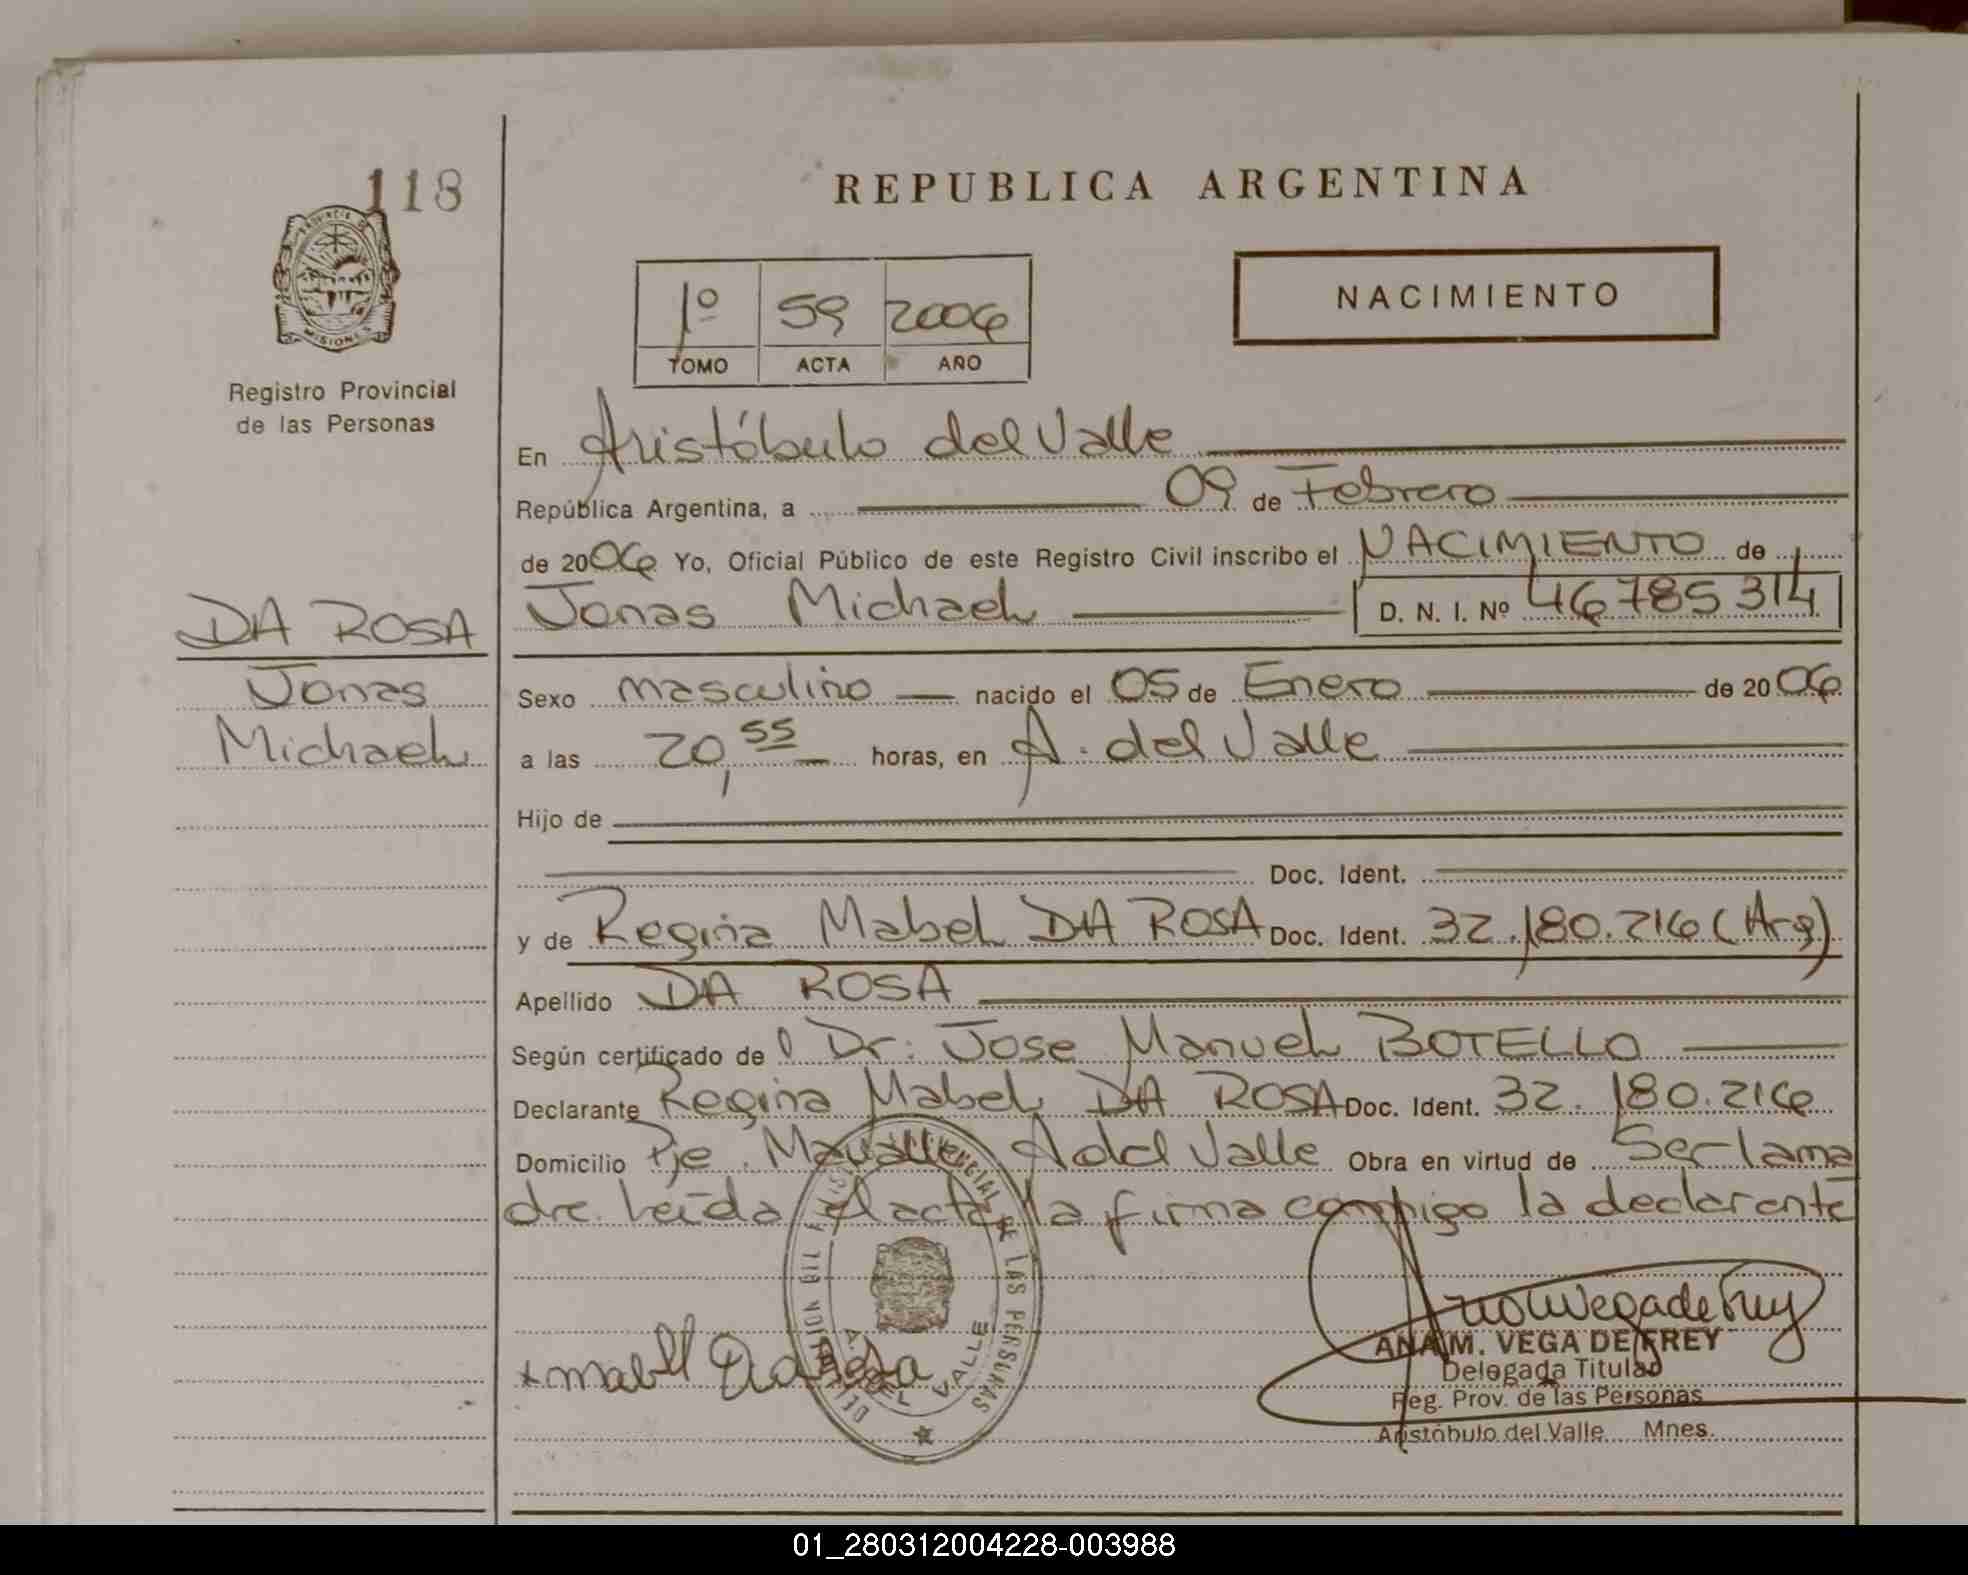 118
REPUBLICA ARGENTINA
PROVINCIA DE
MISIONES
Registro Provincial
de las Personas
1º 59 2006
TOMO ACTA AÑO
NACIMIENTO
En Aristóbulo del Valle
República Argentina, a 09 de Febrero
de 2006 Yo, Oficial Público de este Registro Civil inscribo el NACIMIENTO de
DA ROSA
Jonas
Michael
Jonas Michael D. N. I. Nº 46785314
Sexo masculino nacido el 05 de Enero de 2006
a las 20,55 horas, en A. del Valle
Hijo de
Doc. Ident.
y de Regina Mabel DA ROSA Doc. Ident. 32.180.216 (Arg)
Apellido DA ROSA
Según certificado de l Dr. Jose Manuel BOTELLO
Declarante Regina Mabel DA ROSA Doc. Ident. 32.180.216
Domicilio Pje. A del Valle Obra en virtud de Ser la ma
dre. Leída el acta la firma conmigo la declarante
PROVINCIAL DE LAS PERSONAS
A. DEL VALLE
ANA M. VEGA DE FREY
Delegada Titular
Reg. Prov. de las Personas
Aristóbulo del Valle Mnes.
01_280312004228-003988